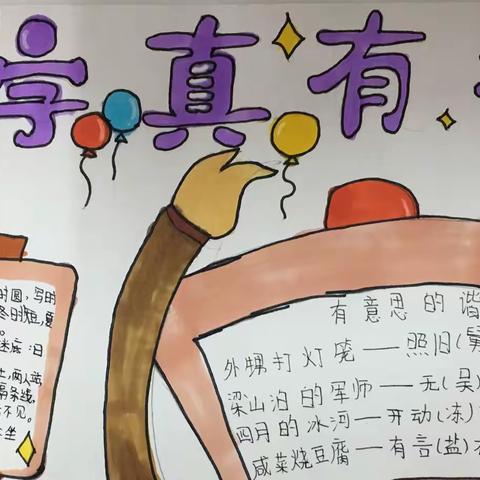 字真有
时圆，写时
冬时短，夏
。
迷底 日
坐，两人站
隔条线，
不见。
坐
有意思的谐
外甥打灯笼——照旧(舅
梁山泊的军师——无(吴)
四月的冰河——开动(冻)
咸菜烧豆腐——有言(盐)